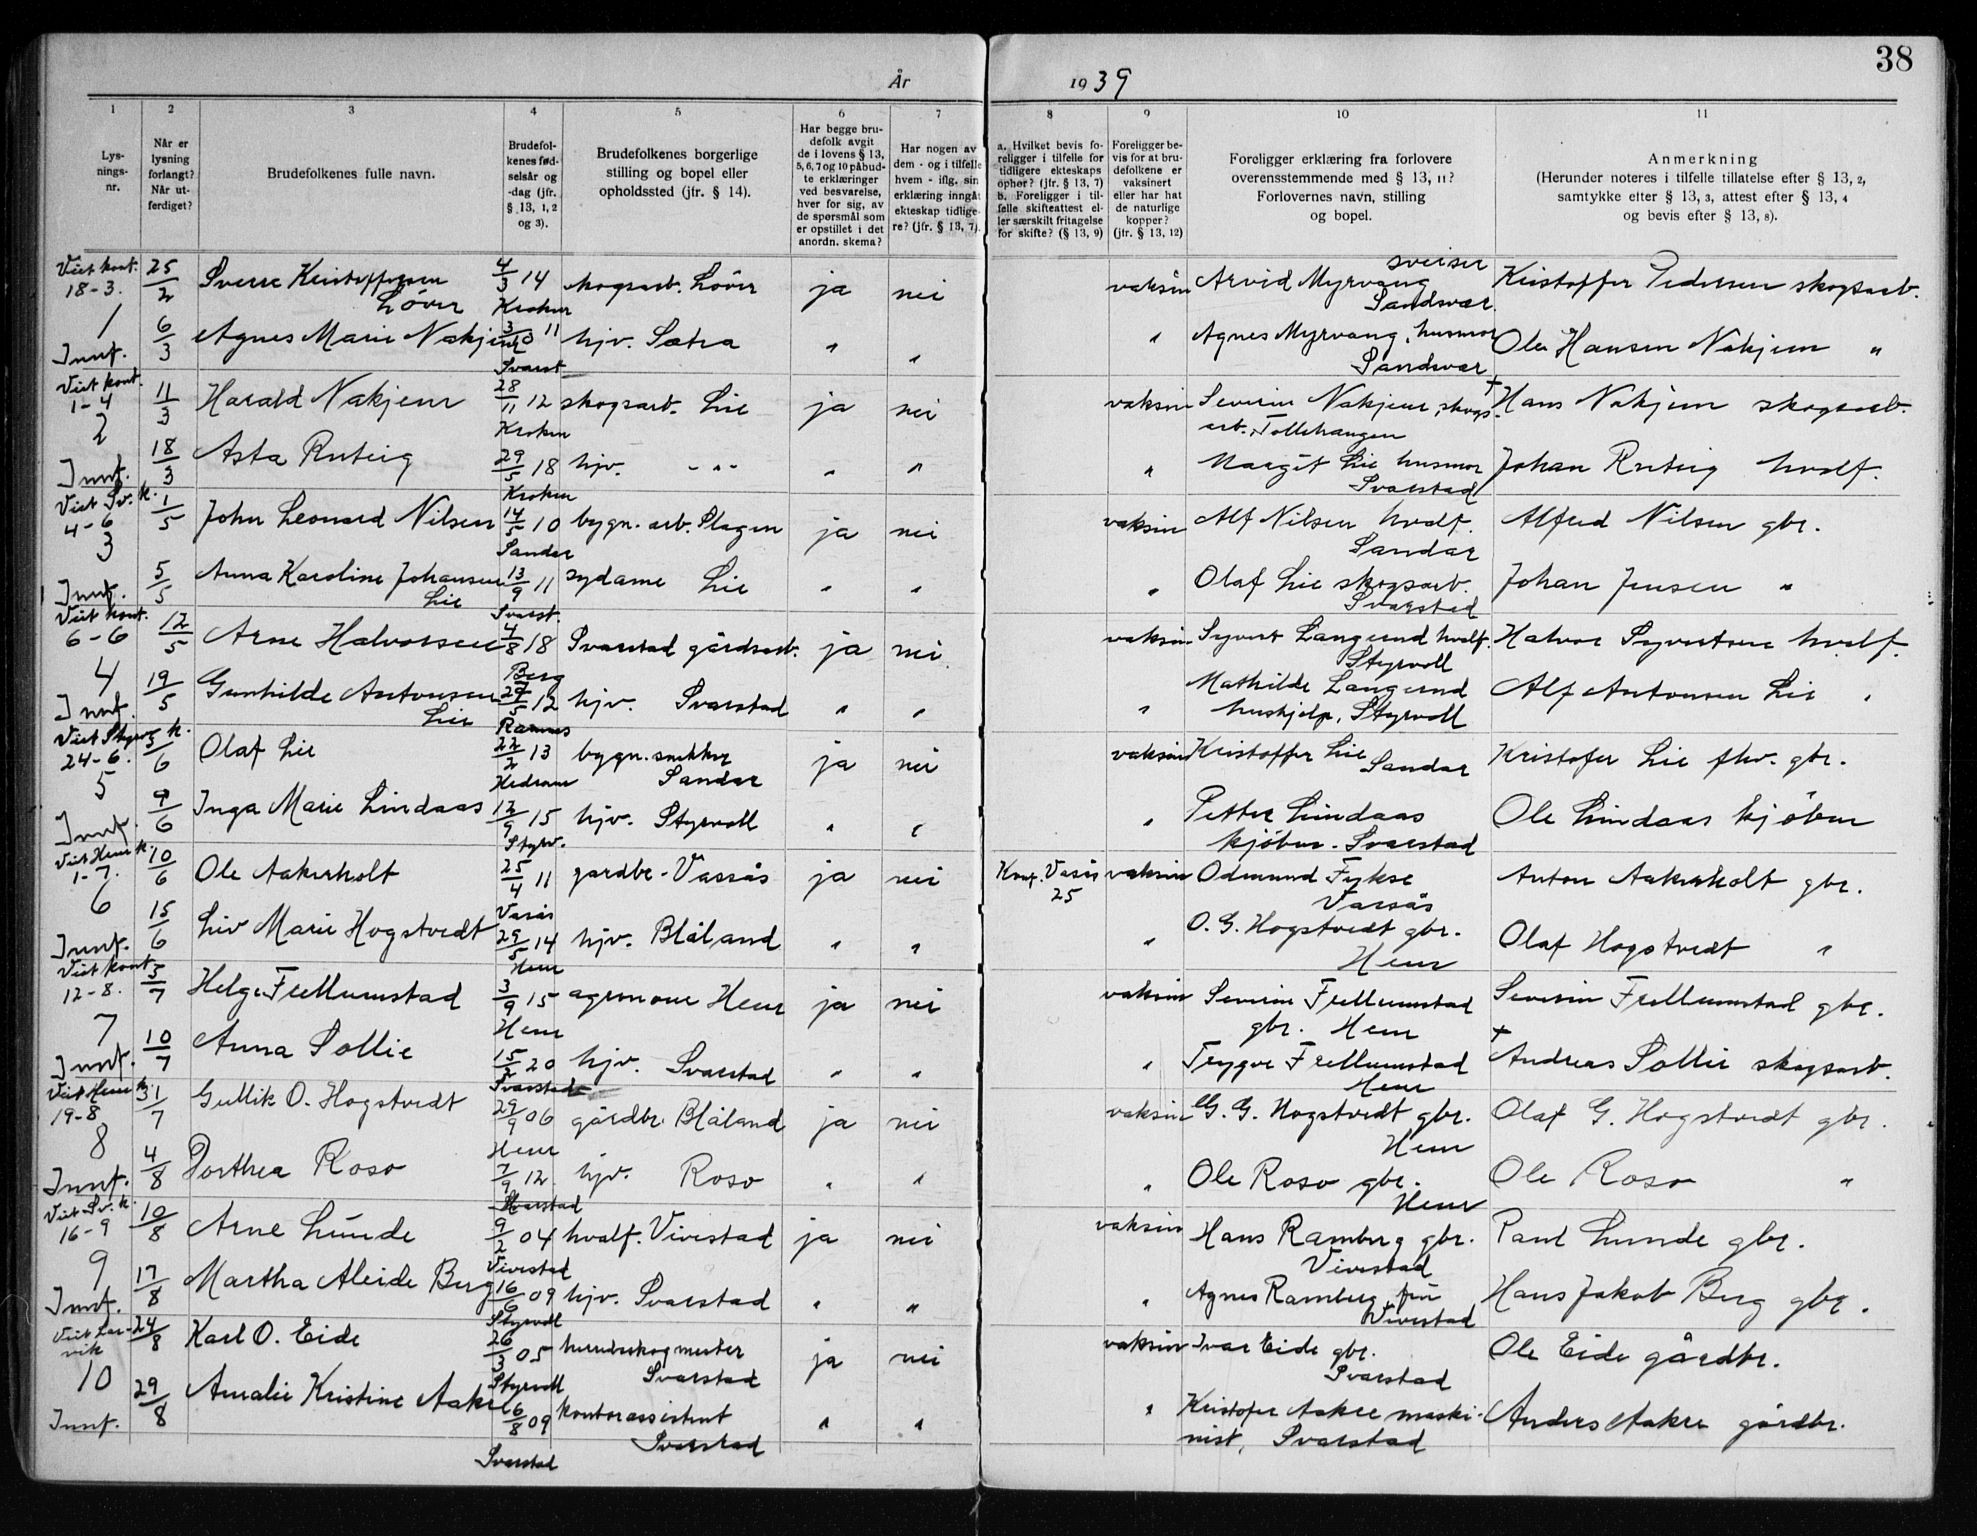 År 1939
38
1 2 3 4 5 6 7 8 9 10 11
Lys-
nings-
nr.
Når er
lysning
forlangt?
Når ut-
ferdiget?
Brudefolkenes fulle navn.
Brudefol-
kenes fød-
selsår og
-dag (jfr.
§ 13, 1, 2
og 3).
Brudefolkenes borgerlige
stilling og bopel eller
opholdssted (jfr. § 14).
Har begge bru-
defolk avgit
de i lovens § 13,
5, 6, 7 og 10 påbud-
te erklæringer
ved besvarelse,
hver for sig, av
de spørsmål som
er opstillet i det
anordn. skema?
Har nogen av
dem - og i tilfelle
hvem - iflg. sin
erklæring inngått
ekteskap tidlige-
re? (jfr. § 13, 7).
a. Hvilket bevis fo-
religger i tilfelle for
tidligere ekteskaps
ophør? (jfr. § 13, 7)
b. Foreligger i til-
felle skifteattest el-
ler særskilt fritagelse
for skifte? (§ 13, 9)
Foreligger be-
vis for at bru-
defolkene er
vaksinert
eller har hat
de naturlige
kopper?
(jfr. § 13, 12)
Foreligger erklæring fra forlovere
overensstemmende med § 13, 11?
Forlovernes navn, stilling
og bopel.
Anmerkning
(Herunder noteres i tilfelle tillatelse efter § 13, 2,
samtykke efter § 13, 3, attest efter § 13, 4
og bevis efter § 13, 8).
Viet kont. 18-3. 25/2 Sverre Kristoffersen Löver 4/3 14 Kroken skogsarb. Löver ja nei vaksin Arvid Myrvang sveiser Sandsvær Kristoffer Pedersen skogsarb.
1 Innf. 6/3 Agnes Marie Nakjem 11 Svarst hjv. Sætra " " " Agnes Myrvang, husmor Sandsvær Ole Hansen Nakjem "
Viet kont. 1-4 11/3 Harald Nakjem 28/11 12 Kroken skogsarb. Lie ja nei vaksin Severin Nakjem, skogs-arb. + Hans Nakjem skogsarb.
2 Innf. 18/3 Asta Ruteig 29/5 18 Kroken hjv. -"- " " " Margit Lie husmor Svarstad Johan Ruteig hvalf.
Viet Sv. k. 4-6 1/5 John Leonard Nilsen 14/5 10 Sandar bygn. arb. Slagen ja nei vaksin Alf Nilsen hvalf. Sandar Alfred Nilsen gbr.
3 Innf. 5/5 Anna Karoline Johansen Lie 13/9 11 Svarst. sydame Lie " " " Olaf Lie skogsarb. Svarstad Johan Jensen "
Viet kont. 6-6 12/5 Arne Halvorsen 4/8 18 Berg Svarstad gårdsarb. ja nei vaksin Syvert Langerud hvalf. Styrvoll Halvor Syvertsen hvalf.
4 Innf. 19/5 Gunhilde Antonsen Lie 5 12 Ramnes hjv. Svarstad " " " Mathilde Langerud hushjelp, Styrvoll Alf Antonsen Lie "
Viet Styrv. k. 24-6. 3/6 Olaf Lie 22/2 13 Hedrum bygn. snekker Sandar ja nei vaksin Kristoffer Lie Sandar Kristofer Lie fhv. gbr.
5 Innf. 9/6 Inga Marie Lindaas 12/9 15 Styrv. hjv. Styrvoll " " " Petter Lindaas kjöbm. Svarstad Ole Lindaas kjöbm
Viet Hem k. 1-7. 10/6 Ole Aakerholt 25/4 11 Vasås gardbr. Vassås ja nei Konf. Vasås 25 vaksin Odmund Fykse Vassås Anton Aakerholt gbr.
6 Innf. 15/6 Liv Marie Hogstvedt 29/5 14 Hem hjv. Blåland " " " O. G. Hogstvedt gbr. Hem Olaf Hogstvedt "
Viet kont 12-8. 3/7 Helge Frellumstad 3/9 15 Hem agronom Hem ja nei vaksin Severin Frellumstad gbr. Hem Severin Frellumstad gbr.
7 Innf. 10/7 Anna Sollie 15/2 20 Svarstad hjv. Svarstad " " " Trygve Frellumstad Hem + Andreas Sollie skogsarb.
Viet Hem k 19-8 31/7 Gullik O. Hogstvedt 29/9 06 Hem gårdbr. Blåland ja nei vaksin G. G. Hogstvedt gbr. Hem Olaf G. Hogstvedt gbr.
8 Innf. 4/8 Dorthea Roso 7/9 12 Svarstad hjv. Roso " " " Ole Roso gbr. Hem Ole Roso "
Viet Sv. k. 16-9 10/8 Arne Lunde 9/2 04 Vivestad hvalf. Vivestad ja nei vaksin Hans Ramberg gbr. Vivestad Paul Lunde gbr.
9 Innf. 17/8 Martha Aleide Berg 16/6 09 Styrvoll hjv. Svarstad " " " Agnes Ramberg, frü Vivestad Hans Jakob Berg gbr.
Viet Larvik 24/8 Karl O. Eide 26/3 05 Styrvoll herredsskogmester Svarstad ja nei vaksin Ivar Eide gbr. Svarstad Ole Eide gårdbr.
10 Innf. 29/8 Amalie Kristine Aakre 6/8 09 Svarstad kontorassistent Svarstad " " " Kristofer Aakre maski-nist, Svarstad Anders Aakre gårdbr.